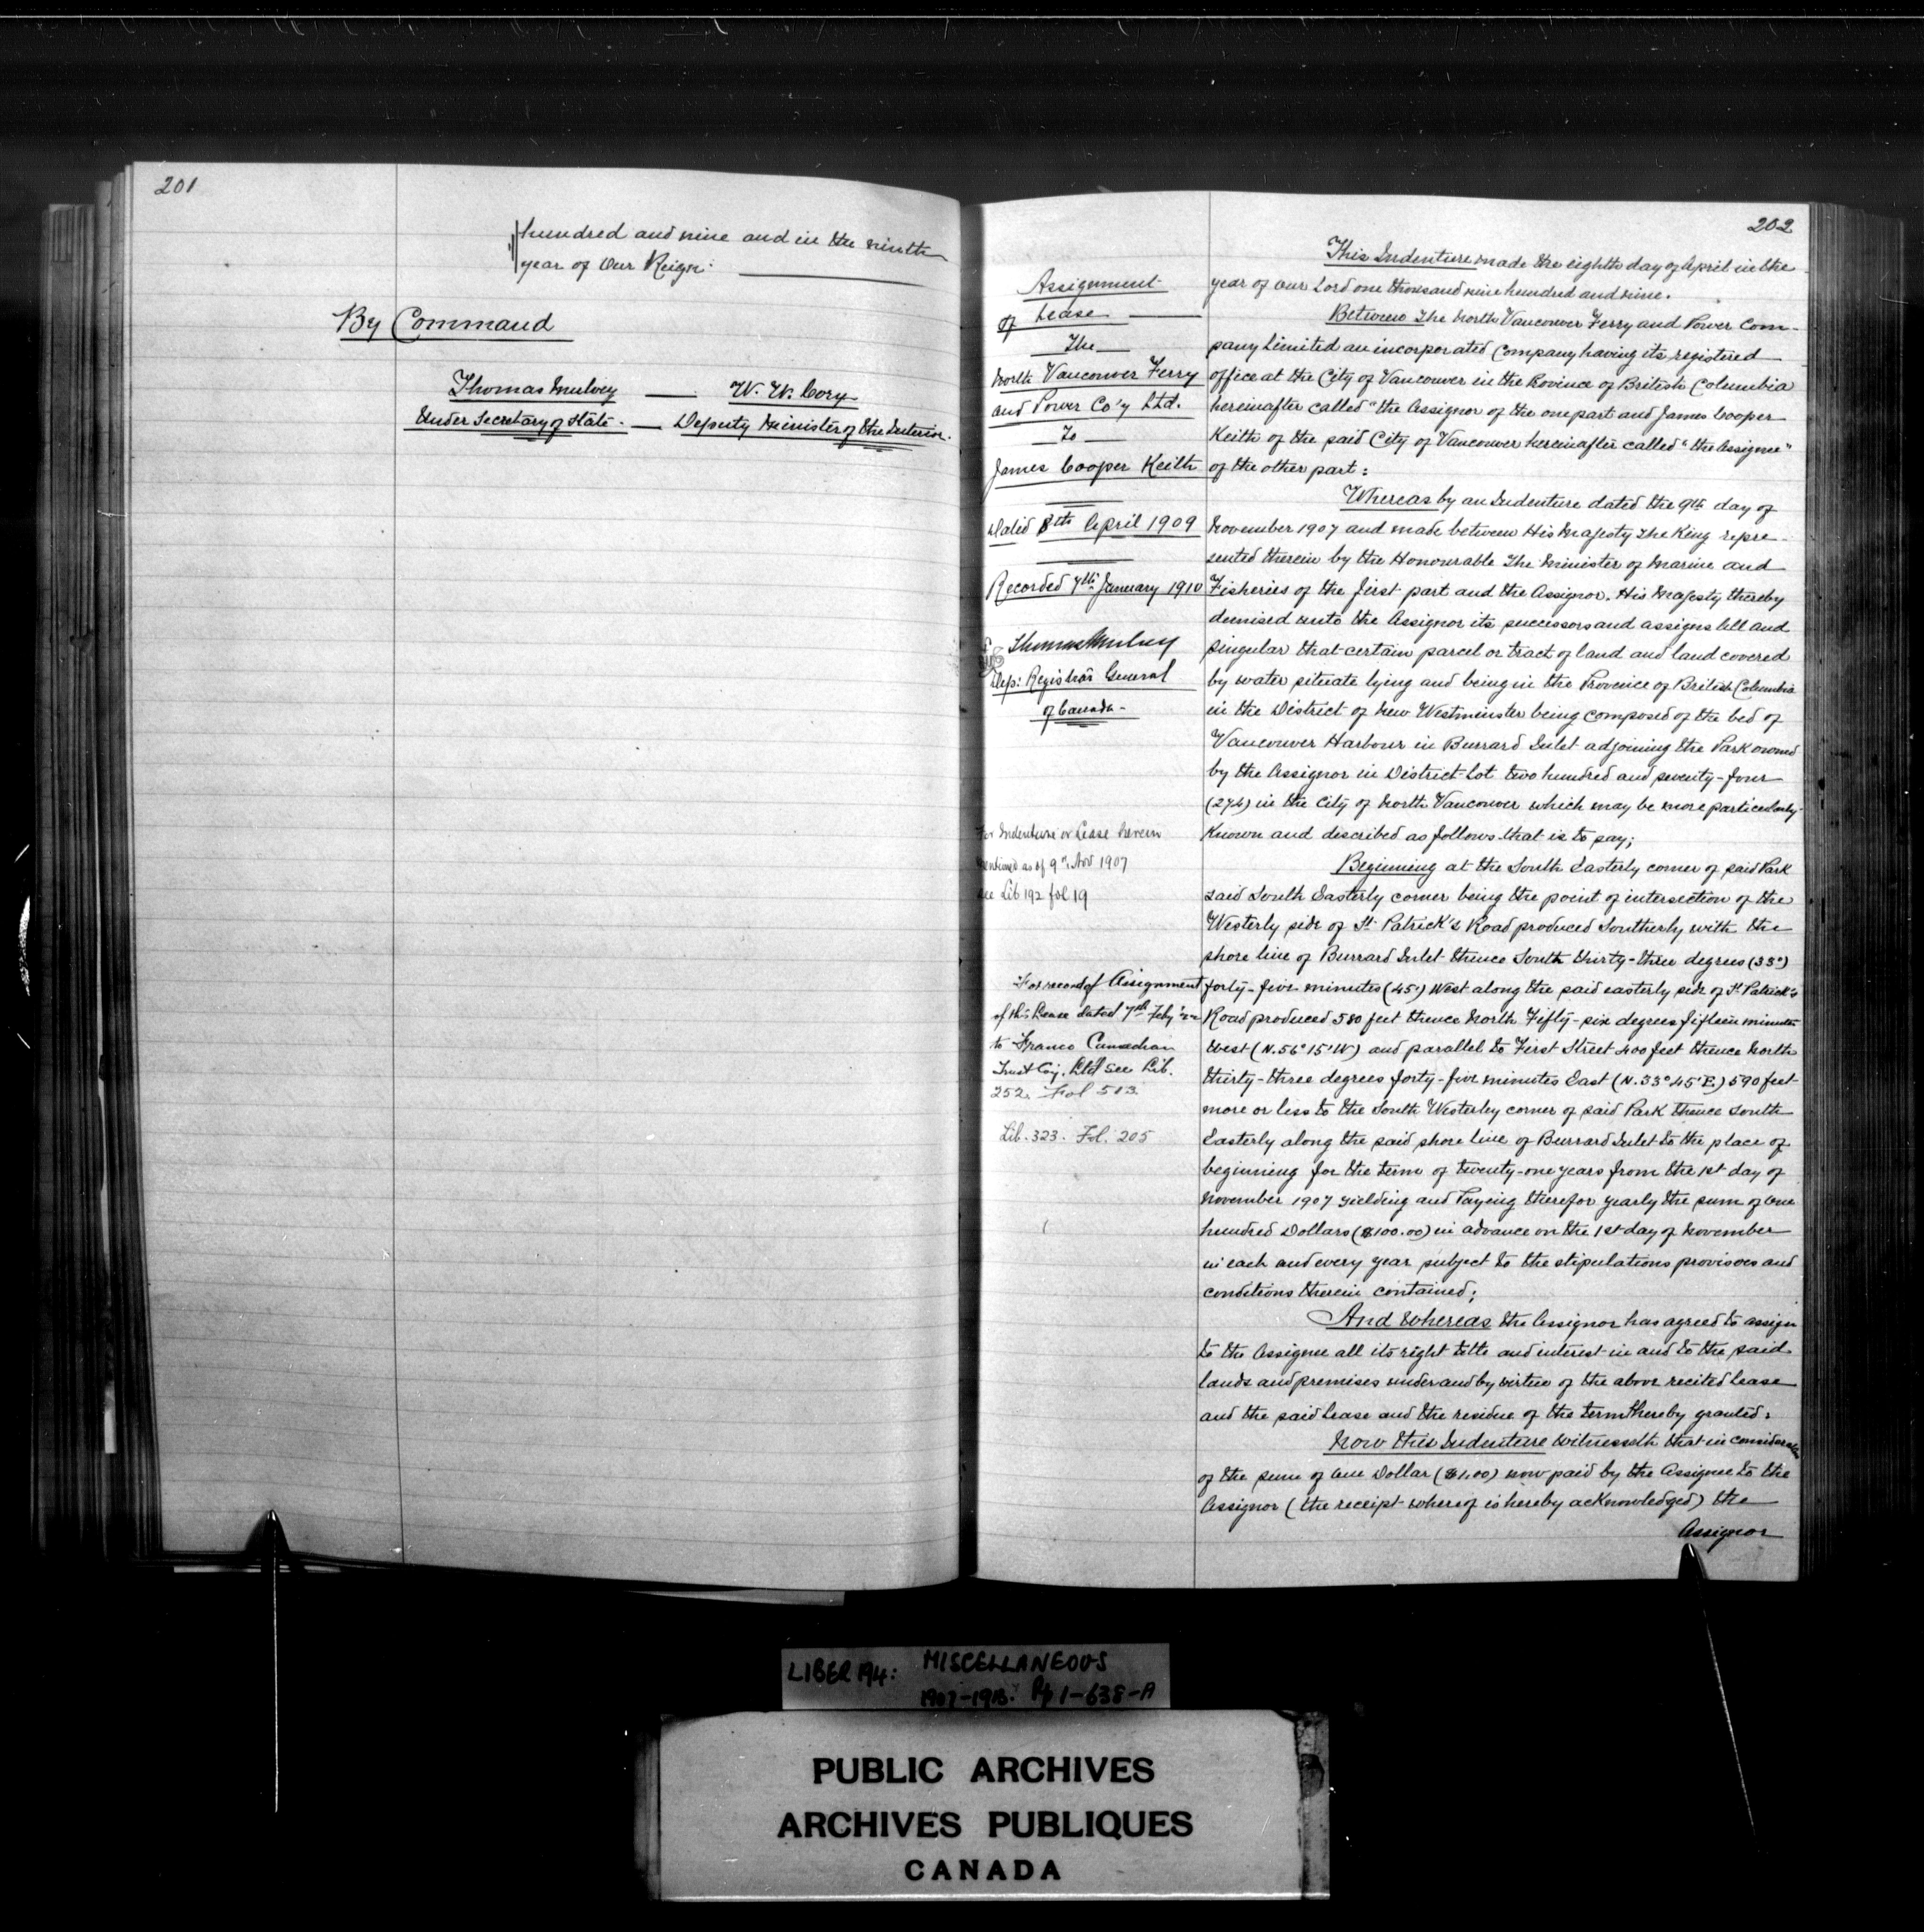 201
hundred and nine and in the ninth
year of Our Reign:
By Command
Thomas Mulvey — W. W. Cory
Under Secretary of State. — Deputy Minister of the Interior.
202
Assignment
of Lease
The
North Vancouver Ferry
and Power Co'y Ltd.
To
James Cooper Keith
Dated 8th April 1909
Recorded 7th January 1910
Thomas Mulvey
Dep: Registrar General
of Canada
For Indenture or Lease herein
mentioned as of 9th Nov 1907
see Lib 192 fol 19
For record of Assignment
of this Lease dated 7th Feby '22
to Franco Canadian
Trust Coy. Ltd see Lib.
252. Fol 513.
Lib. 323. Fol. 205
This Indenture made the eighth day of April in the
year of Our Lord one thousand nine hundred and nine.
Between The North Vancouver Ferry and Power Com-
pany Limited an incorporated Company having its registered
office at the City of Vancouver in the Province of British Columbia
hereinafter called "the Assignor of the one part and James Cooper
Keith of the said City of Vancouver hereinafter called "the Assignee"
of the other part:
Whereas by an Indenture dated the 9th day of
November 1907 and made between His Majesty The King repre-
sented therein by the Honourable The Minister of Marine and
Fisheries of the first part and the Assignor. His Majesty thereby
demised unto the Assignor its successors and assigns All and
Singular that certain parcel or tract of land and land covered
by water situate lying and being in the Province of British Columbia
in the District of New Westminster being composed of the bed of
Vancouver Harbour in Burrard Inlet adjoining the Park owned
by the Assignor in District Lot two hundred and seventy-four
(274) in the City of North Vancouver which may be more particularly
known and described as follows that is to say;
Beginning at the South Easterly corner of said Park
said South Easterly corner being the point of intersection of the
Westerly side of St. Patrick's Road produced Southerly with the
shore line of Burrard Inlet thence South thirty-three degrees (33°)
forty-five minutes (45') West along the said easterly side of St. Patrick's
Road produced 580 feet thence North Fifty-six degrees fifteen minutes
West (N. 56° 15' W) and parallel to First Street 400 feet thence North
thirty-three degrees forty-five minutes East (N. 33° 45' E.) 590 feet
more or less to the South Westerley corner of said Park thence South
Easterly along the said shore line of Burrard Inlet to the place of
beginning for the term of twenty-one years from the 1st day of
November 1907 yielding and Paying therefor yearly the sum of One
hundred Dollars ($100.00) in advance on the 1st day of November
in each and every year subject to the stipulations provisoes and
conditions therein contained;
And Whereas the Assignor has agreed to assign
to the Assignee all its right title and interest in and to the said
lands and premises under and by virtue of the above recited Lease
and the said Lease and the residue of the term thereby granted;
Now this Indenture Witnesseth that in consideration
of the sum of One Dollar ($1.00) now paid by the Assignee to the
Assignor (the receipt whereof is hereby acknowledged) the
Assignor
LIBER 194: MISCELLANEOUS
1907-1913. Pp 1-638-A
PUBLIC ARCHIVES
ARCHIVES PUBLIQUES
CANADA